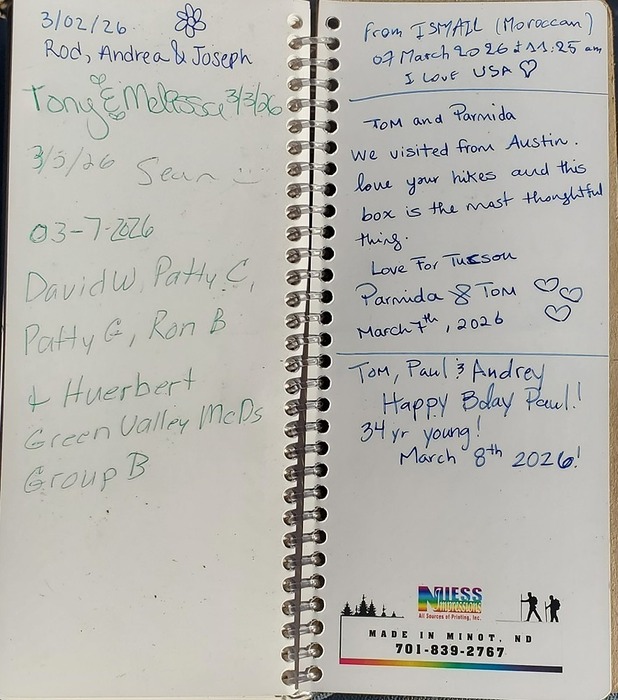 3/02/26
Rod, Andrea & Joseph
Tony & Melissa 3/3/26
3/5/26 Sean
03-7-2026
David W, Patty C,
Patty G, Ron B
+ Huerbert
Green Valley McDs
Group B
From ISMAIL (Moroccan)
07 March 2026 at 11:25 am
I LOVE USA ♡
TOM and Parmida
We visited from Austin.
love your hikes and this
box is the most thoughtful
thing.
Love For Tucson
Parmida & TOM
March 7th, 2026
Tom, Paul & Andrey
Happy Bday Paul!
34 yr young!
March 8th 2026!
NIESS
Impressions
All Sources of Printing, Inc.
MADE IN MINOT, ND
701-839-2767